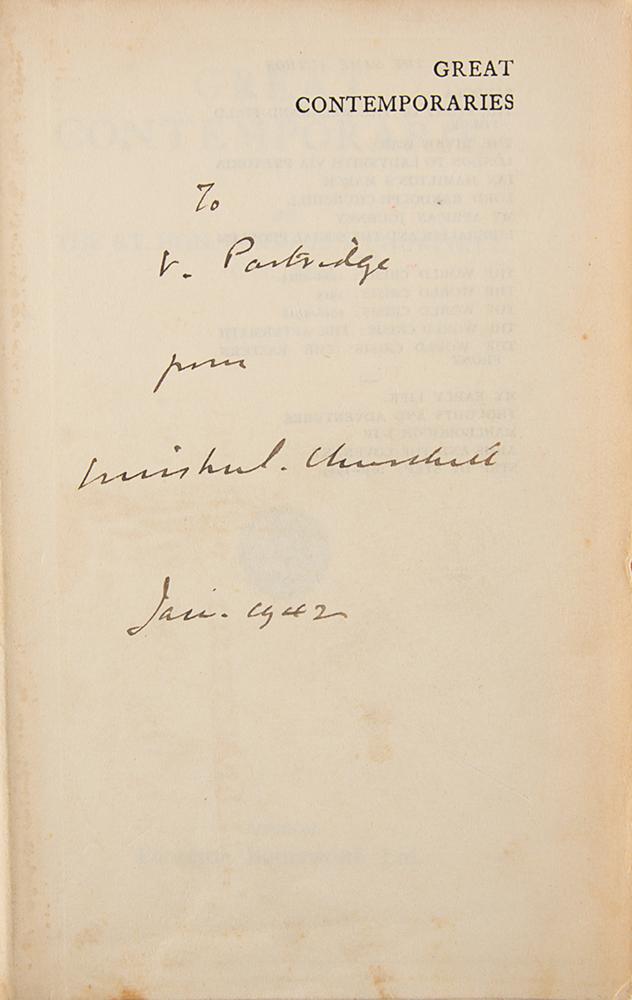 GREAT
CONTEMPORARIES
To
V. Partridge
from
Winston S. Churchill
Jan. 1942